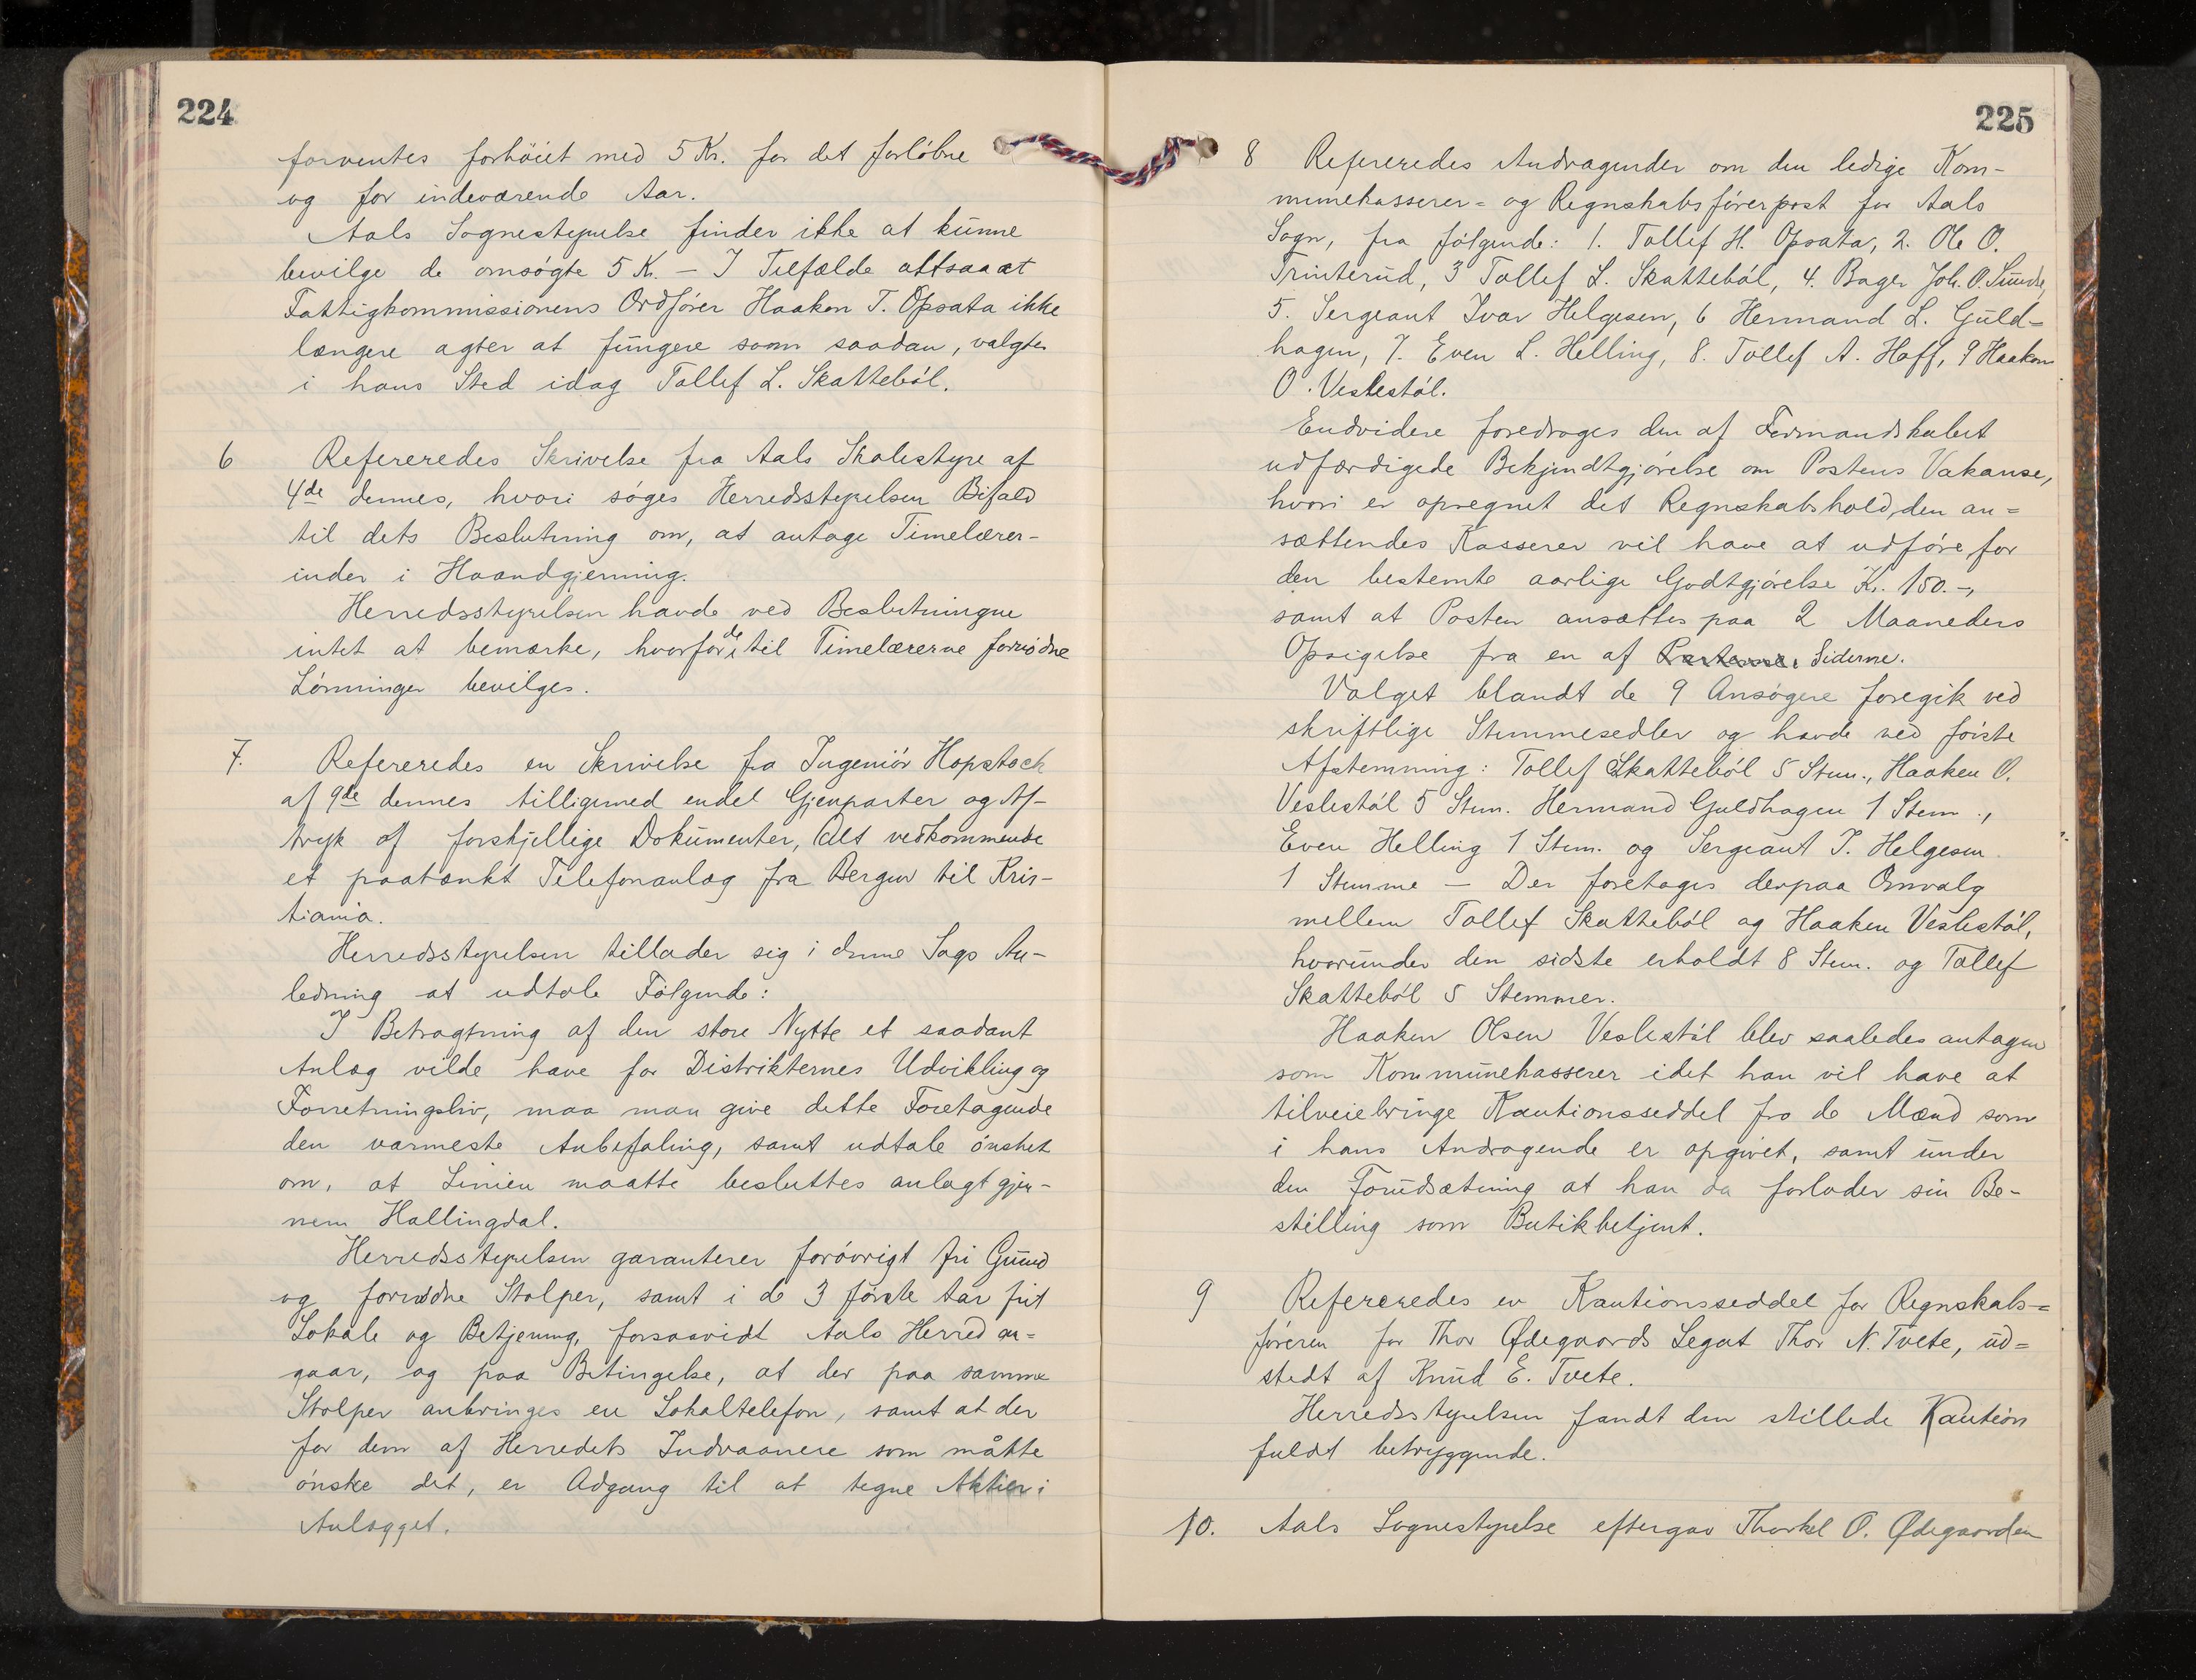 224
forventes forhöiet med 5 Kr. for det forløbne
og for indeværende Aar.
Aals Sognestyrelse finder ikke at kunne
bevilge de omsøgte 5 Kr. — I Tilfælde altsaa at
Fattigkommissionens Ordfører Haakon T. Opsata ikke
længere agter at fungere som saadan, valgtes
i hans Sted idag Tollef L. Skattebøl.
6 Refereredes Skrivelse fra Aals Skolestyre af
4de dennes, hvori søges Herredsstyrelsen Bifald
til dets Beslutning om, at antage Timelærer-
inder i Haandgjerning.
Herredsstyrelsen havde ved Beslutningne
intet at bemærke, hvorfor de til Timelærerne fornødne
Lønninger bevilges.
7. Refereredes en Skrivelse fra Ingeniör Hopstock
af 9de dennes tilligemed endel Gjenparter og Af-
tryk af forskjellige Dokumenter, Alt vedkommende
et paatænkt Telefonanlæg fra Bergen til Kris-
tiania.
Herredsstyrelsen tillader sig i denne Sags An-
ledning at udtale Følgende:
I Betragtning af den store Nytte et saadant
Anlæg vilde have for Distrikternes Udvikling og
Forretningsliv, maa man give dette Foretagende
den varmeste Anbefaling, samt udtale ønsket
om, at Linien maatte besluttes anlagt gjen-
nem Hallingdal.
Herredsstyrelsen garanterer forøvrigt fri Grund
og fornødne Stolper, samt i de 3 første Aar frit
Lokale og Betjening, forsaavidt Aals Herred an-
gaar, og paa Betingelse, at der paa samme
Stolper anbringes en Lokaltelefon, samt at der
for dem af Herredets Indvaanere som måtte
ønske det, er Adgang til at tegne Aktier i
Anlægget.
225
8 Refereredes Andragender om den ledige Kom-
munekasserer= og Regnskabsførerpost for Aals
Sogn, fra følgende: 1. Tollef H. Opsata, 2. Ole O.
Trinterud, 3 Tollef L. Skattebøl, 4. Bager Joh. O. Sunde,
5. Sergeant Ivar Helgesen, 6 Hermand L. Guld=
hagen, 7. Even L. Helling, 8. Tollef A. Hoff, 9 Haaken
O. Veslestøl.
Endvidere foredroges den af Formandskabet
udfærdigede Bekjendtgjørelse om Postens Vakanse,
hvori er opregnet det Regnskabshold, den an=
sættendes Kasserer vil have at udføre for
den bestemte aarlige Godtgjørelse Kr. 150.-,
samt at Posten ansættes paa 2 Maaneders
Opsigelse fra en af Parterne. Siderne.
Valget blandt de 9 Ansøgere foregik ved
skriftlige Stemmesedler og havde ved første
Afstemning: Tollef Skattebøl 5 Stem., Haaken O.
Veslestøl 5 Stem. Hermand Guldhagen 1 Stem.,
Even Helling 1 Stem. og Sergeant I. Helgesen
1 Stemme — Der foretages derpaa Omvalg
mellem Tollef Skattebøl og Haaken Veslestøl,
hvorunder den sidste erholdt 8 Stem. og Tollef
Skattebøl 5 Stemmer.
Haaken Olsen Veslestøl blev saaledes antagen
som Kommunekasserer idet han vil have at
tilveiebringe Kautionsseddel fra de Mænd som
i hans Andragende er opgivet, samt under
den Forudsætning at han da forlader sin Be-
stilling som Butikbetjent.
9 Refereredes en Kautionsseddel for Regnskabs=
føreren for Thor Ødegaards Legat Thor N. Tvete, ud=
stedt af Knud E. Tvete.
Herredsstyrelsen fandt den stillede Kaution
fuldt betryggende.
10. Aals Sognestyrelse eftergav Thorkel O. Ødegaarden